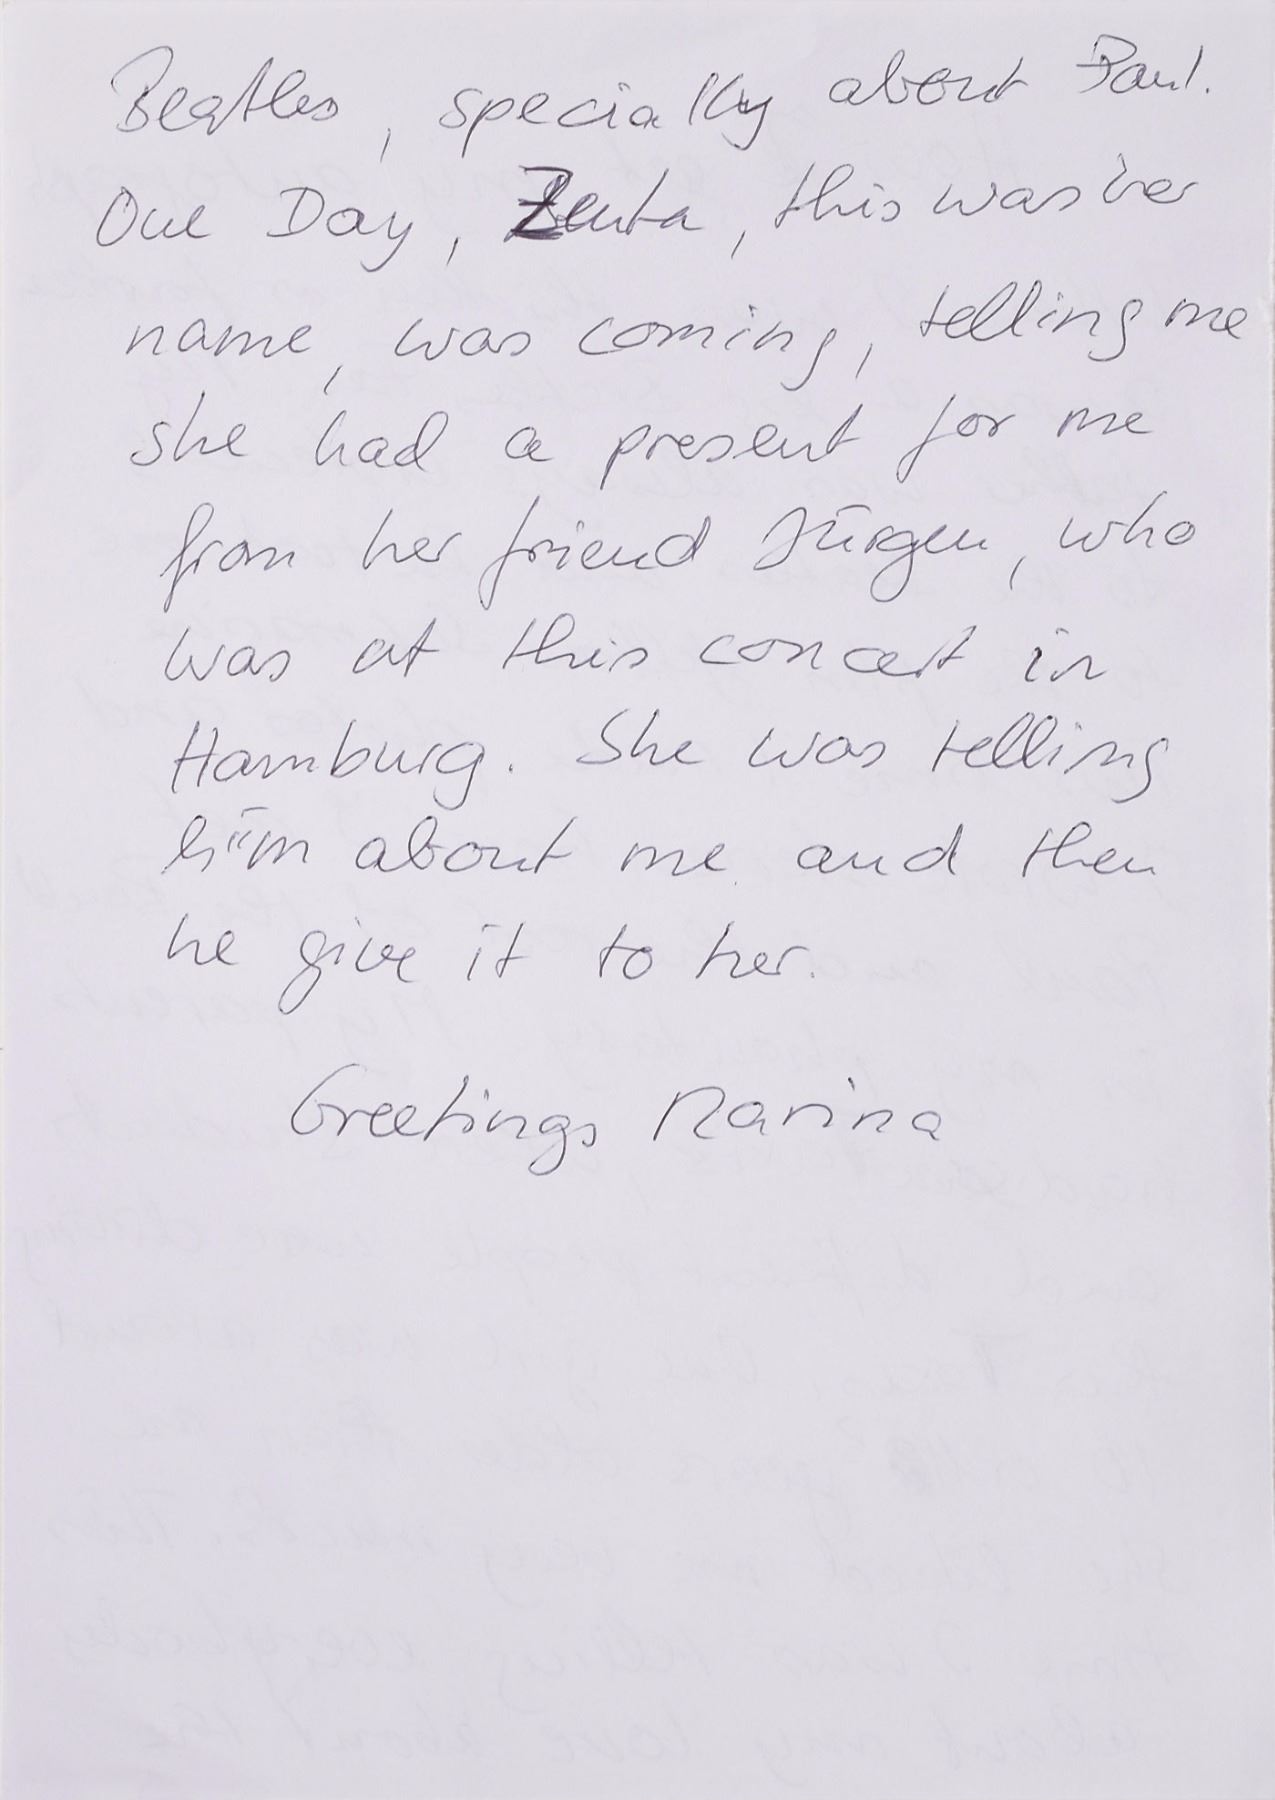 Beatles, specially about Paul.
One Day, Zenta, this was her
name, was coming, telling me
she had a present for me
from her friend Jürgen, who
was at this concert in
Hamburg. She was telling
him about me and then
he give it to her.
Greetings Marina